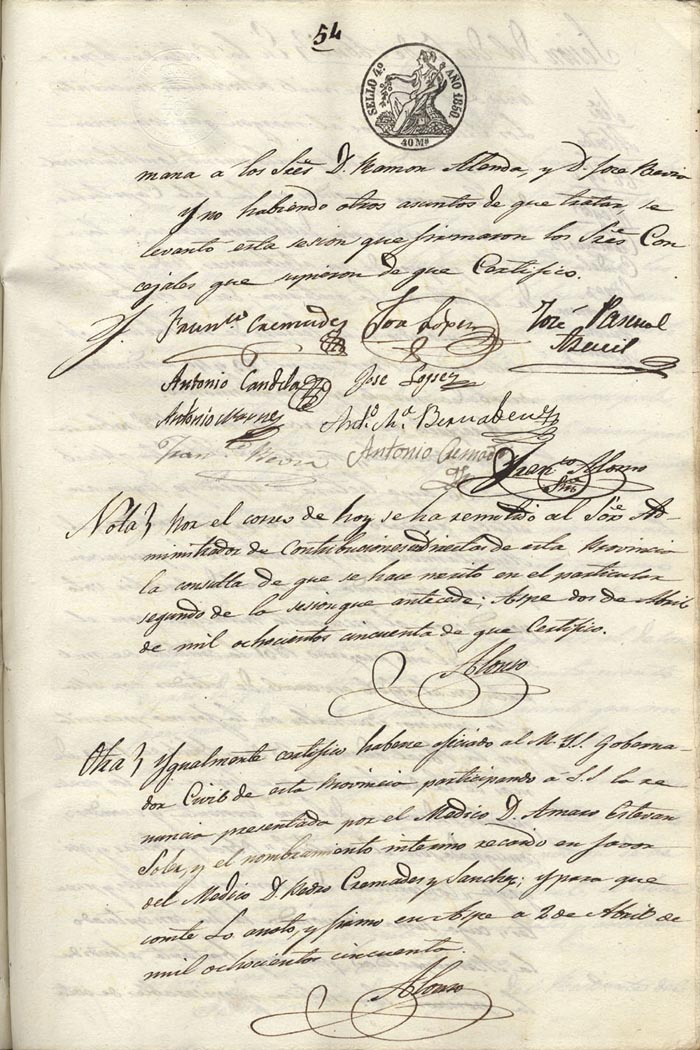 54
SELLO 4º AÑO 1850.
40 Ms
mana a los Sres. D. Ramon Alenda, y D. Jose
Y no habiendo otros asuntos de que tratar se
levantó esta sesion que firmaron los Sres. Con
cejales que supieron de que Certifico.
Cremades Jose López José Pascual
Antonio Candela Jose Lopez
Antonio Anto. Ma. Bernabeu
Antonio Cremades Franco. Alonso
Nota Por el correo de hoy se ha remitido al Sor. Ad
ministrador de Contribuciones directas de esta Provincia
la consulta de que se hace merito en el particular
segundo de la sesion que antecede; Aspe dos de Abril
de mil ochocientos cincuenta de que Certifico.
Alonso
Otra Ygualmente certifico haberse oficiado al M. Y. S. Goberna-
dor Civil de esta Provincia participando á S. S. la re
nuncia presentada por el Medico D. Amaro Estevan
Soler, y el nombramiento interino recaido en favor
del Medico D. Pedro Cremades y Sanchez; y para que
conste lo anoto, y firmo en Aspe a 2 de Abril de
mil ochocientos cincuenta.
Alonso